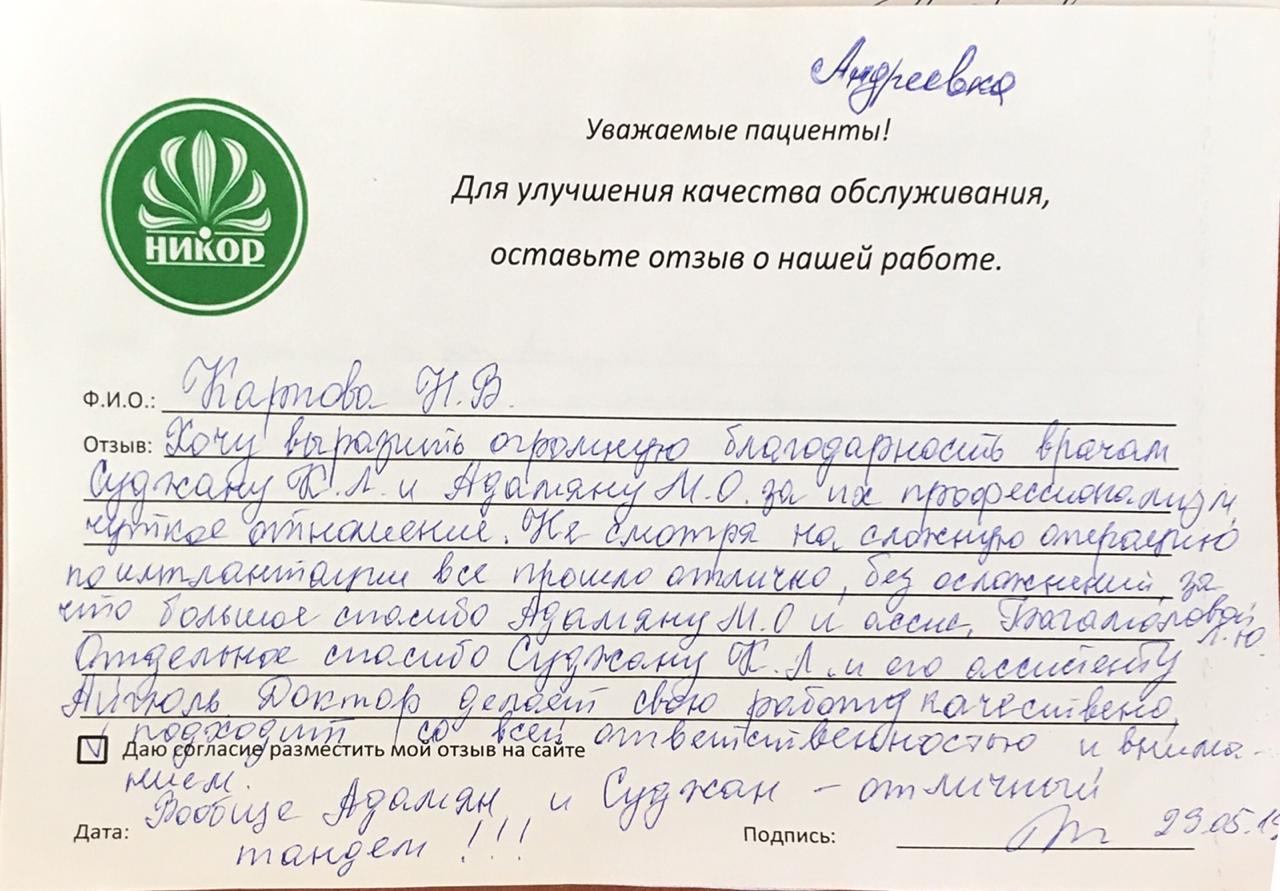 Андреевка
Уважаемые пациенты!
Для улучшения качества обслуживания,
оставьте отзыв о нашей работе.
НИКОР
Ф.И.О.: Карпова Н.В.
Отзыв: Хочу выразить огромную благодарность врачам
Суджану К.Л. и Адамяну М.О. за их профессионализм,
чуткое отношение. Не смотря на сложную операцию
по имплантации все прошло отлично, без осложнений, за
что большое спасибо Адамяну М.О и ассис.
Л.Ю.
Отдельное спасибо Суджану К.Л. и его ассистенту
Айгюль Доктор делает свою работу качествено,
подходит со всей ответственностью и внима-
Даю согласие разместить мой отзыв на сайте
нием.
Вообще Адамян и Суджан - отличный
Дата: Подпись: 29.05.19
тандем !!!